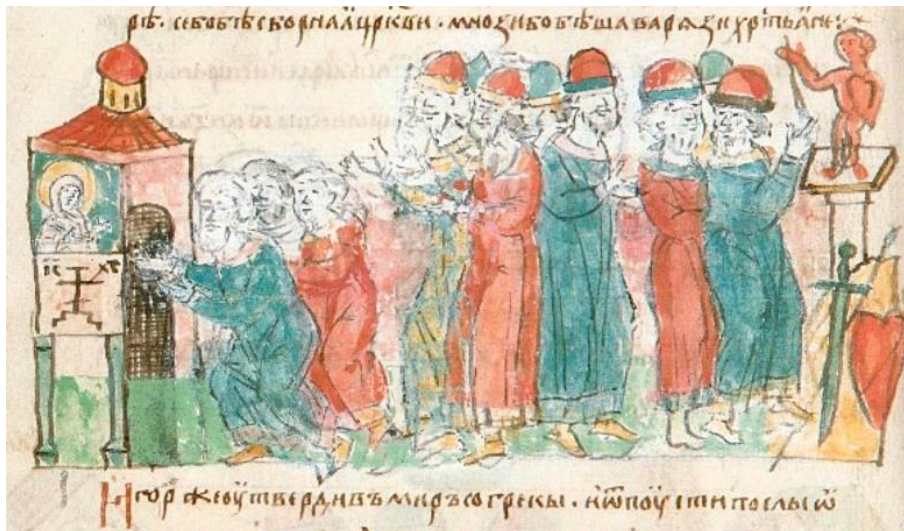 рѣ · се бо бѣ сборнаꙗ црк҃ви · мнози бо бѣша варѧзи хр҃тьꙗне :
іс хъ
Игорь же оутвердивъ миръ со грекы · и ѿпоусти послы ѿ